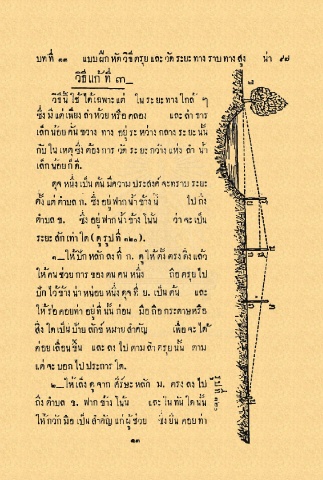 บทที่ ๑๓ แบบฝึกหัดวิธีตรุย และวัดระยะทางราบทางสูง น่า ๙๗
วิธีแก้ที่ ๓_
วิธีนี้ใช้ได้เฉพาะแต่ ในระยะทางใกล้ ๆ
ซึ่งมีแต่เพียงลำห้วยหรือคลอง และลำธาร
เล็กน้อยคั่นขวางทาง อยู่ระหว่างกลางระยะนั้น
กับในเหตุซึ่งต้องการวัดระยะกว้างแห่งลำน้ำ
เล็กน้อยก็ดี
ดุจหนึ่งเป็นต้นมีความประสงค์จะทราบระยะ
ตั้งแต่ตำบล ก. ซึ่งอยู่ฟากน้ำข้างนี้ ไปถึง
ตำบล ข. ซึ่งอยู่ฟากน้ำข้างโน้น ว่าจะเป็น
ระยะสักเท่าใด (ดูรูปที่ ๑๒๐).
๑_ให้ปักหลักลงที่ ก. ดูให้ตั้งตรงดิ่งแล้ว
ให้คนช่วยการของตนคนหนึ่ง ถือตรุยไป
ปักไว้ข้างน่าหน่อยหนึ่งดุจที่ ย. เป็นต้น และ
ให้รอคอยท่าอยู่ที่นั้นก่อน มือถือกระดาษหรือ
สิ่งใดเป็นป้ายสักชี้หมายสำคัญ เพื่อจะได้
ค่อยเลื่อนขึ้น และลงไปตามลำตรุยนั้น ตาม
แต่จะบอกไปประการใด.
๒_ให้เล็งดูจากศีร์ษะหลัก ม. ตรงลงไป
ถึงตำบล ข. ฟากข้างโน้น และในทันใดนั้น
ให้กวักมือเป็นสำคัญแก่ผู้ช่วย ซึ่งยืนคอยท่า
รูปที่ ๑๒๐
๑๓